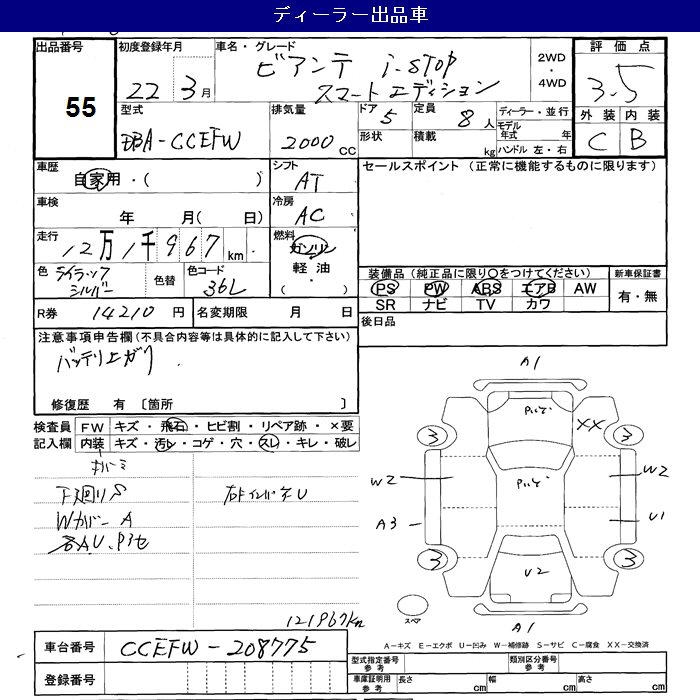 ディーラー出品車
出品番号
55
初度登録年月
22 3月
車名・グレード
ビアンテ i-STOP
スマートエディション
2WD
・
4WD
評価点
3.5
外装 内装
C B
型式
DBA-CCEFW
排気量
2000 cc
ドア 5
形状
定員 8人
積載 kg
ディーラー・並行
モデル年式 年
ハンドル 左・右
車歴
自家用・( )
シフト
AT
セールスポイント (正常に機能するものに限ります)
車検
年 月( 日)
冷房
AC
走行
12万1千967km
燃料
ガソリン
軽油
( ・ )
色
ライラックシルバー
色替
色コード
36L
装備品(純正品に限り○をつけてください)
PS PW ABS エアB AW
SR ナビ TV カワ
新車保証書
有・無
R券 14210円
名変期限 月 日
後日品
注意事項申告欄(不具合内容等は具体的に記入して下さい)
バッテリーエガリ
修復歴 有 〔箇所 〕
検査員
記入欄
FW キズ・飛石・ヒビ割・リペア跡・×要
内装 キズ・汚レ・コゲ・穴・スレ・キレ・破レ
下廻りS
WカバーA
各AU、P3セ
右インパネU
121967km
A1
XX
3
3
W2
W2
A3
U1
3
3
U2
スペア
A1
A-キズ E-エクボ U-凹み W-補修跡 S-サビ C-腐食 XX-交換済
車台番号 CCEFW-208775
登録番号
型式指定番号
参考
類別区分番号
参考
車庫証明用
参考
長さ cm
幅 cm
高さ cm